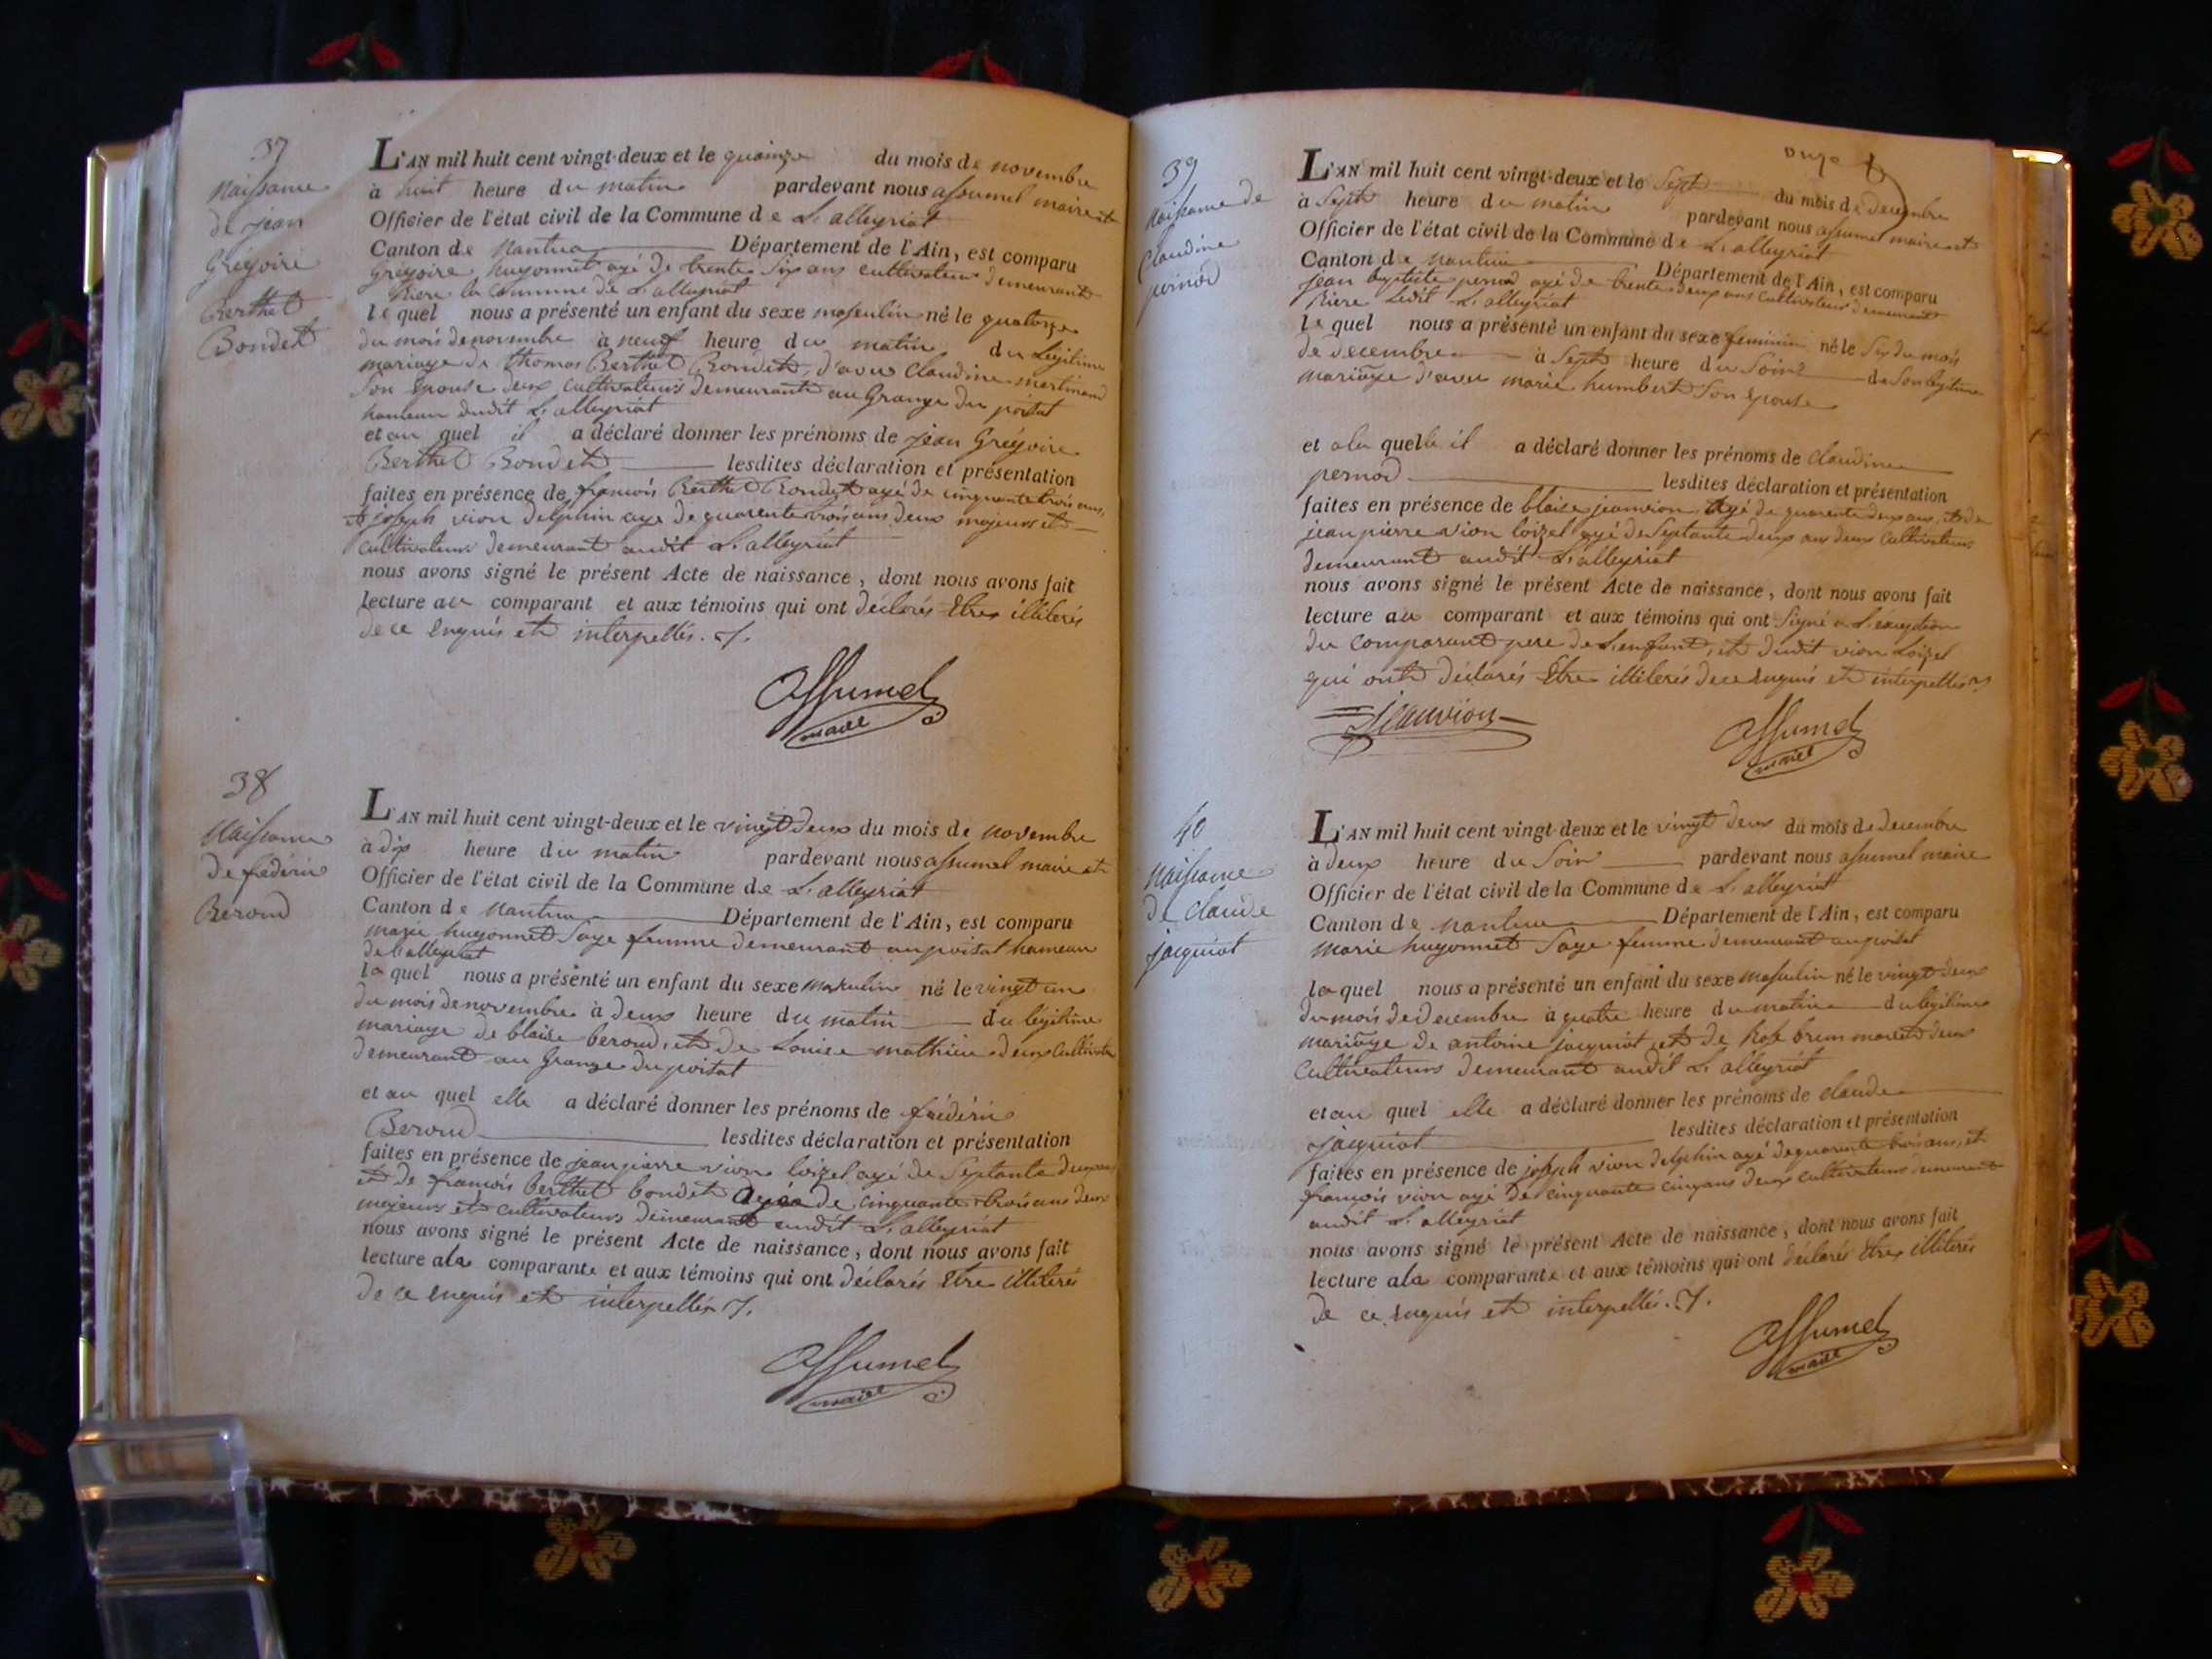 37
Naissance
de jean
Grégoire
Berthet
Bondet
L'AN mil huit cent vingt-deux et le quainze du mois de novembre
à huit heure du matin pardevant nous assumel maire et
Officier de l'état civil de la Commune de L'alleyriat
Canton de Nantua Département de l'Ain, est comparu
Grégoire hugonnet agé de trente six ans cultivateur demeurant
riere la commune de L'alleyriat
lequel nous a présenté un enfant du sexe masculin né le quatorze
du mois de novembre à neuf heure du matin du légitime
mariage de thomas Berthet Bondet, d'avec Claudine martinand
son epouse deux cultivateurs demeurant au Grange du poitat
hameau dudit L'alleyriat
et au quel il a déclaré donner les prénoms de jean Grégoire
Berthet Bondet lesdites déclaration et présentation
faites en présence de françois Berthet Bondet agé de cinquante trois ans,
et joseph vion delphin age de quarente trois ans deux majeurs et
cultivateurs demeurant audit L'alleyriat
nous avons signé le présent Acte de naissance, dont nous avons fait
lecture au comparant et aux témoins qui ont déclarés Etre illiterés
de ce enquis et interpellés.
Assumel
maire
38
Naissance
de fredéric
Beroud
L'AN mil huit cent vingt-deux et le vingt deux du mois de novembre
à dix heure du matin pardevant nous assumel maire et
Officier de l'état civil de la Commune de L'alleyriat
Canton de Nantua Département de l'Ain, est comparu
marie hugonnet sage femme demeurant au poitat hameau
de L'alleyriat
laquel nous a présenté un enfant du sexe masculin né le vingt un
du mois de novembre à deux heure du matin du légitime
mariage de blaise beroud, et de Louise mathieu deux cultivateurs
demeurant au Grange du poitat
et au quel elle a déclaré donner les prénoms de frédéric
Beroud lesdites déclaration et présentation
faites en présence de jean pierre vion loizel agé de septante deux ans
et de françois berthet bondet agé de cinquante trois ans deux
majeurs et cultivateurs demeurant audit L'alleyriat
nous avons signé le présent Acte de naissance, dont nous avons fait
lecture ala comparante et aux témoins qui ont déclarés Etre illiterés
de ce enquis et interpellés.
Assumel
maire
39
Naissance de
Claudine
pernod
L'AN mil huit cent vingt-deux et le sept du mois de decembre
à sept heure du matin pardevant nous assumel maire et
Officier de l'état civil de la Commune de L'alleyriat
Canton de Nantua Département de l'Ain, est comparu
jean baptiste pernod agé de trente deux ans cultivateur demeurant
riere ledit L'alleyriat
lequel nous a présenté un enfant du sexe feminin né le six du mois
de decembre à sept heure du Soir de son legitime
mariage d'avec marie humbert son epouse
et ala quelle il a déclaré donner les prénoms de claudine
pernod lesdites déclaration et présentation
faites en présence de blaise jeanvion, agé de quarente deux ans, et de
jean pierre vion loizel agé de septante deux ans deux cultivateurs
demeurant audit L'alleyriat
nous avons signé le présent Acte de naissance, dont nous avons fait
lecture au comparant et aux témoins qui ont signé a L'exception
du comparant pere de L'enfant, et dudit vion Loizel
qui ont déclarés Etre illiterés de ce enquis et interpellés
Jeanvion
Assumel
maire
40
Naissance
de claude
jacquiot
L'AN mil huit cent vingt-deux et le vingt deux du mois de decembre
à deux heure du Soir pardevant nous assumel maire
Officier de l'état civil de la Commune de L'alleyriat
Canton de Nantua Département de l'Ain, est comparu
marie hugonnet sage femme demeurant au poitat
laquel nous a présenté un enfant du sexe masculin né le vingt deux
du mois de decembre à quatre heure du matin du legitime
mariage de antoine jacquiot et de Rose brun deux
cultivateurs demeurant audit L'alleyriat
et au quel elle a déclaré donner les prénoms de claude
jacquiot lesdites déclaration et présentation
faites en présence de joseph vion delphin agé de quarente trois ans, et
françois vion agé de cinquante cinq ans deux cultivateurs demeurant
audit L'alleyriat
nous avons signé le présent Acte de naissance, dont nous avons fait
lecture ala comparante et aux témoins qui ont déclarés Etre illiterés
de ce enquis et interpellés.
Assumel
maire